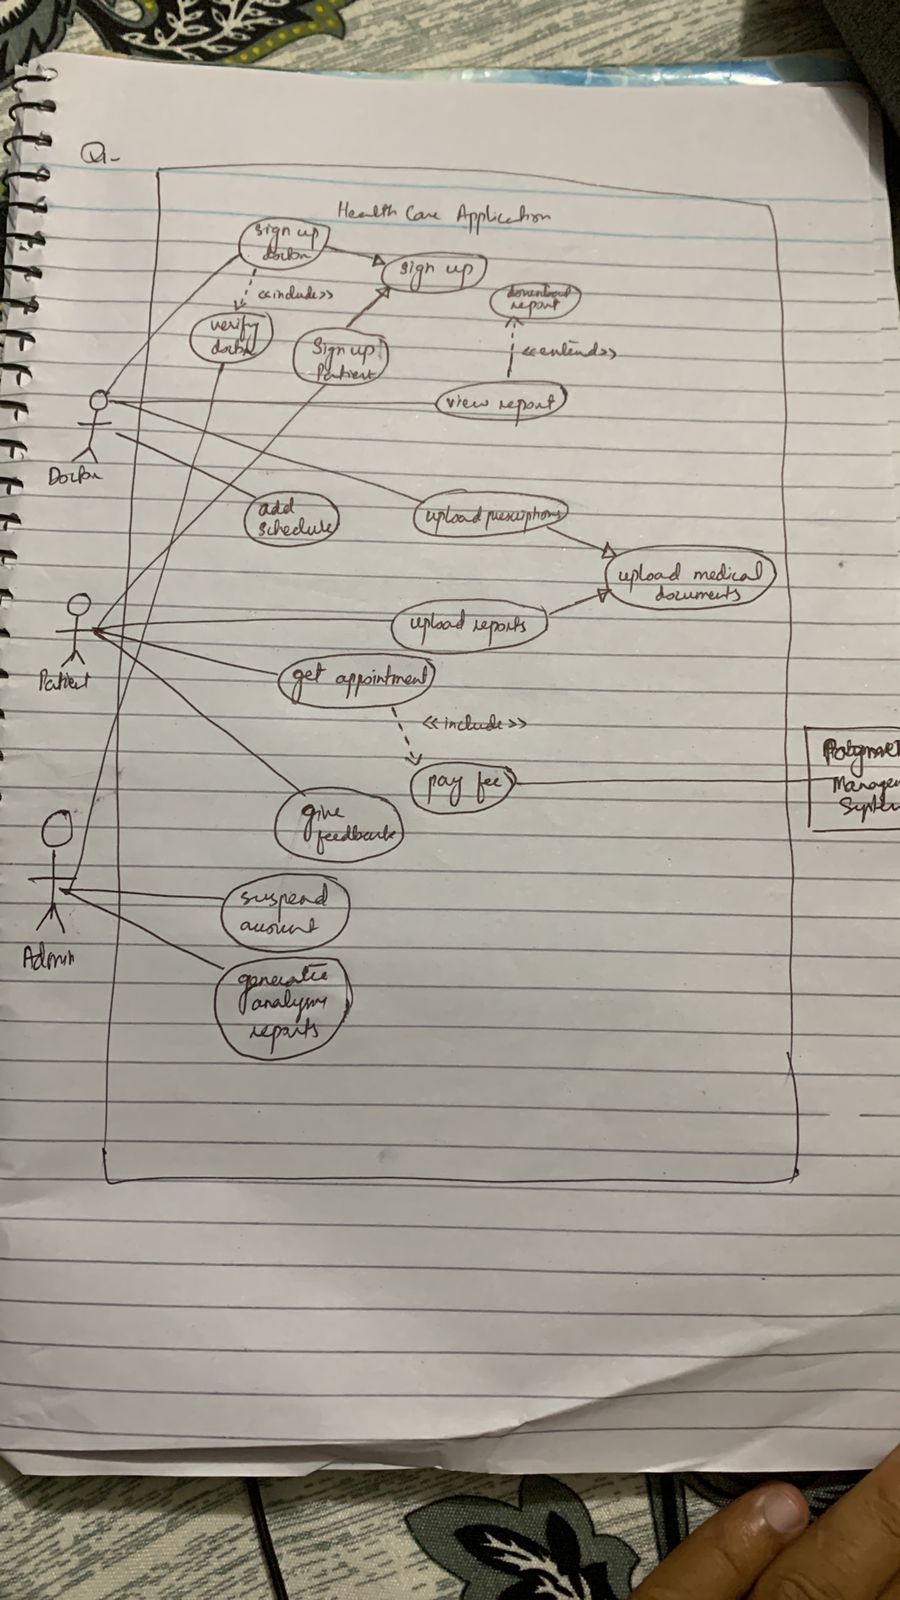 Q1-
Health Care Application
sign up
doctor
sign up
<<include>>
download
report
verify
doctor
Sign up
Patient
<<extend>>
view report
Doctor
add
schedule
upload prescriptions
upload medical
documents
upload reports
Patient
get appointment
<<include>>
pay fee
Manage
System
give
feedback
suspend
account
Admin
generate
analysis
reports